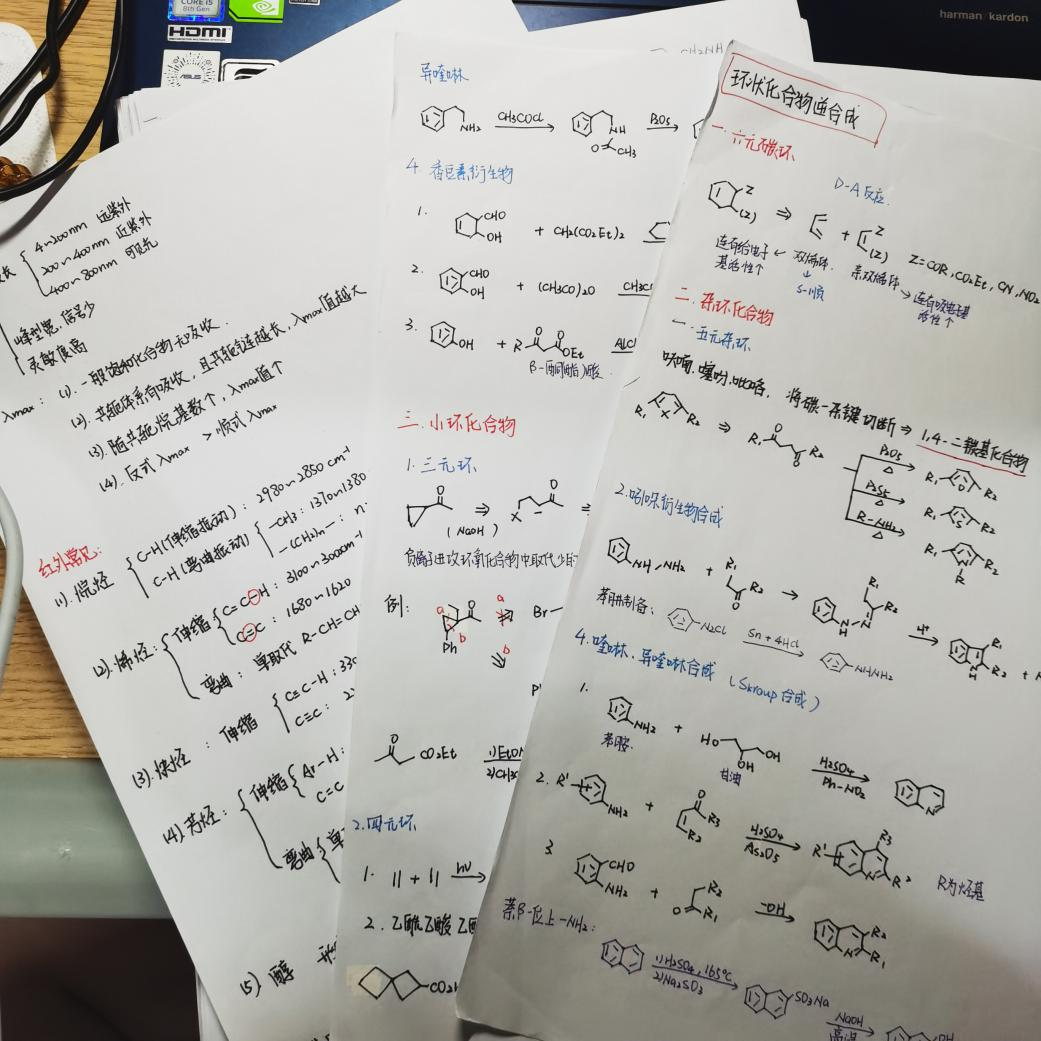 CORE i5
8th Gen
HDMI
ASUS
harman / kardon
长
4~200nm 远紫外
200~400nm 近紫外
400~800nm 可见光
峰型宽,信号少
灵敏度高
λmax:
(1). 一般饱和化合物无吸收.
(2). 共轭体系有吸收,且共轭链越长,λmax值越大
(3). 随共轭烷基数个,λmax值个
(4). 反式λmax > 顺式λmax
红外常见:
(1). 烷烃
C-H(伸缩振动): 2980~2850 cm⁻¹
C-H(弯曲振动)
-CH3: 1370~1380
-(CH2)n-: n
(2). 烯烃:
伸缩
C=C-H: 3100~3000cm⁻¹
C=C: 1680~1620
弯曲: 单取代 R-CH=CH
(3). 炔烃: 伸缩
C≡C-H: 330
C≡C: 2
(4). 芳烃:
伸缩
Ar-H:
C=C
弯曲
(5) 醇
异喹啉
NH2
CH3COCl
NH
O
CH3
P2O5
4. 香豆素衍生物
1.
CHO
OH
+ CH2(CO2Et)2
2.
CHO
OH
+ (CH3CO)2O
3.
OH
+ R
O O
OEt
AlCl
β-酮(酯)酸
三. 小环化合物
1. 三元环
O
⇒
X
O
⇒
(NaOH)
负离子进攻环氧化合物中取代少的
例:
a
b
Ph
O
a
Br
b
O
CO2Et
1) EtON
2) CH3
2. 四元环
1. || + || hν
2. 乙酰乙酸乙
环状化合物逆合成
一. 六元碳环
D-A反应.
Z
(Z)
⇒
+
Z
(Z)
Z=COR, CO2Et, CN, NO2
连有给电子
基活性个
← 双烯体.
S-顺
亲双烯体
→ 连有吸电子基
活性个
二. 杂环化合物
一. 五元杂环
呋喃.噻吩.吡咯, 将碳-杂键切断⇒1,4-二羰基化合物
R1
X
R2
⇒
R1
O
O
R2
P2O5
△
R1
O
R2
P2S5
△
R1
S
R2
R-NH2
△
R1
N
R
R2
2. 吲哚衍生物合成
NH/NH2
+
R1
R2
O
→
N
H
N
R1
R2
H⁺
R1
R2
N
H
+
苯肼制备:
N2Cl
Sn + 4HCl
NHNH2
4. 喹啉、异喹啉合成 (Skraup合成)
1.
NH2
苯胺
+
HO
OH
OH
甘油
H2SO4
Ph-NO2
N
2. R'
NH2
+
O
R3
R2
H2SO4
As2O5
R'
R3
R2
N
R为烃基
3
CHO
NH2
+
R2
O
R1
⁻OH
R2
R1
N
萘β-位上-NH2:
1) H2SO4, 165℃
2) Na2SO3
SO3Na
NaOH
高温
OH